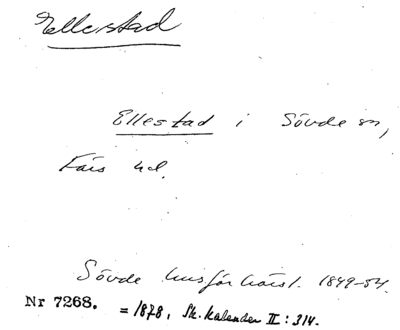 Ellestad
Ellestad i Sövde sn,
Färs hd.
Sövde husförhörsl. 1849-54.
Nr 7268. = 1878, Sk. kalender II: 314.